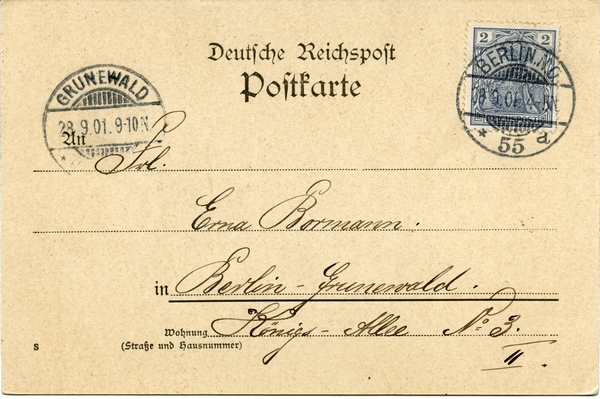 Deutsche Reichspost
Postkarte
2 2
BERLIN.N.O.
28.9.01. 4-5N.
* 55 a
GRUNEWALD
28.9.01. 9-10N.
*
An
Frl.
Erna Bormann.
in Berlin-Grunewald.
Wohnung Königs-Allee No 3.
(Straße und Hausnummer)
II.
S